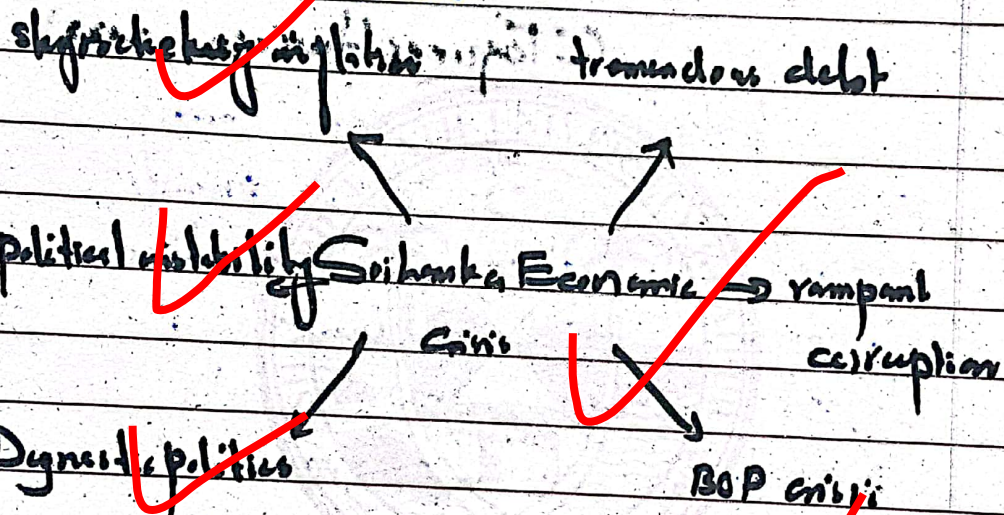 skyrocketing inflation tremendous debt
political instability Srilanka Economic → rampant
Crisis corruption
Dynastic politics BOP crisis